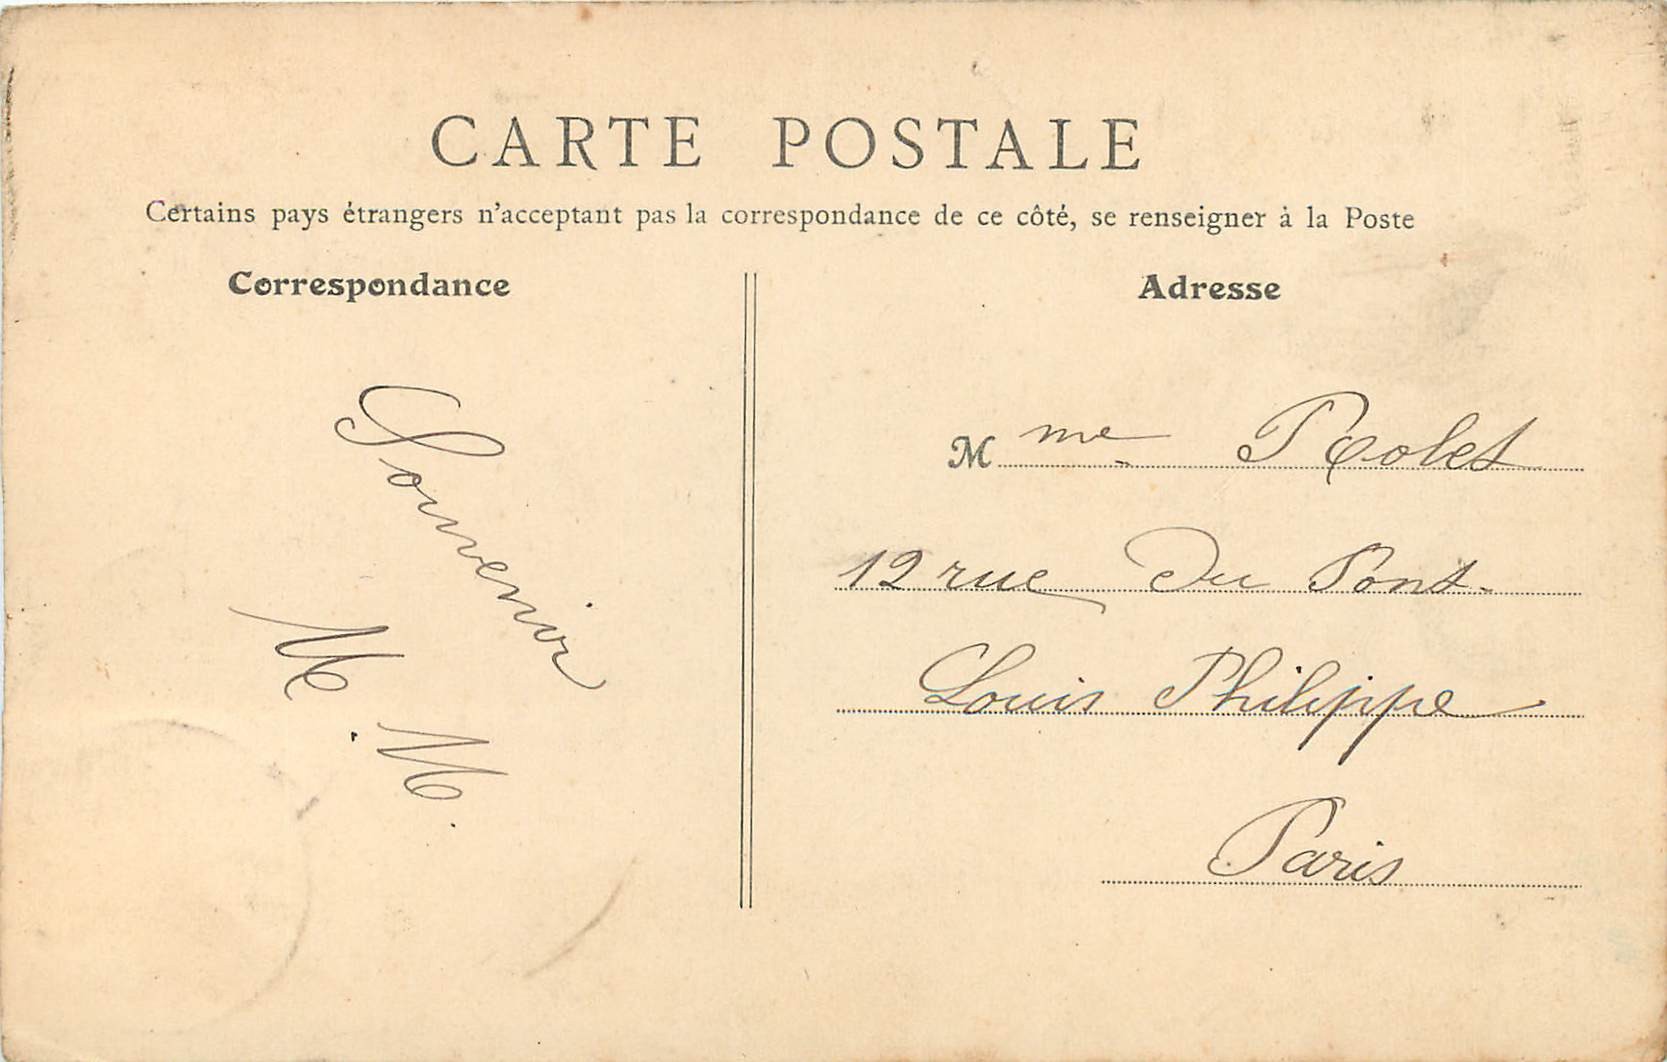 CARTE POSTALE
Certains pays étrangers n'acceptant pas la correspondance de ce côté, se renseigner à la Poste
Correspondance
Souvenir
M. M.
Adresse
Mme Rolet
12 rue Du Pont-
Louis Philippe
Paris